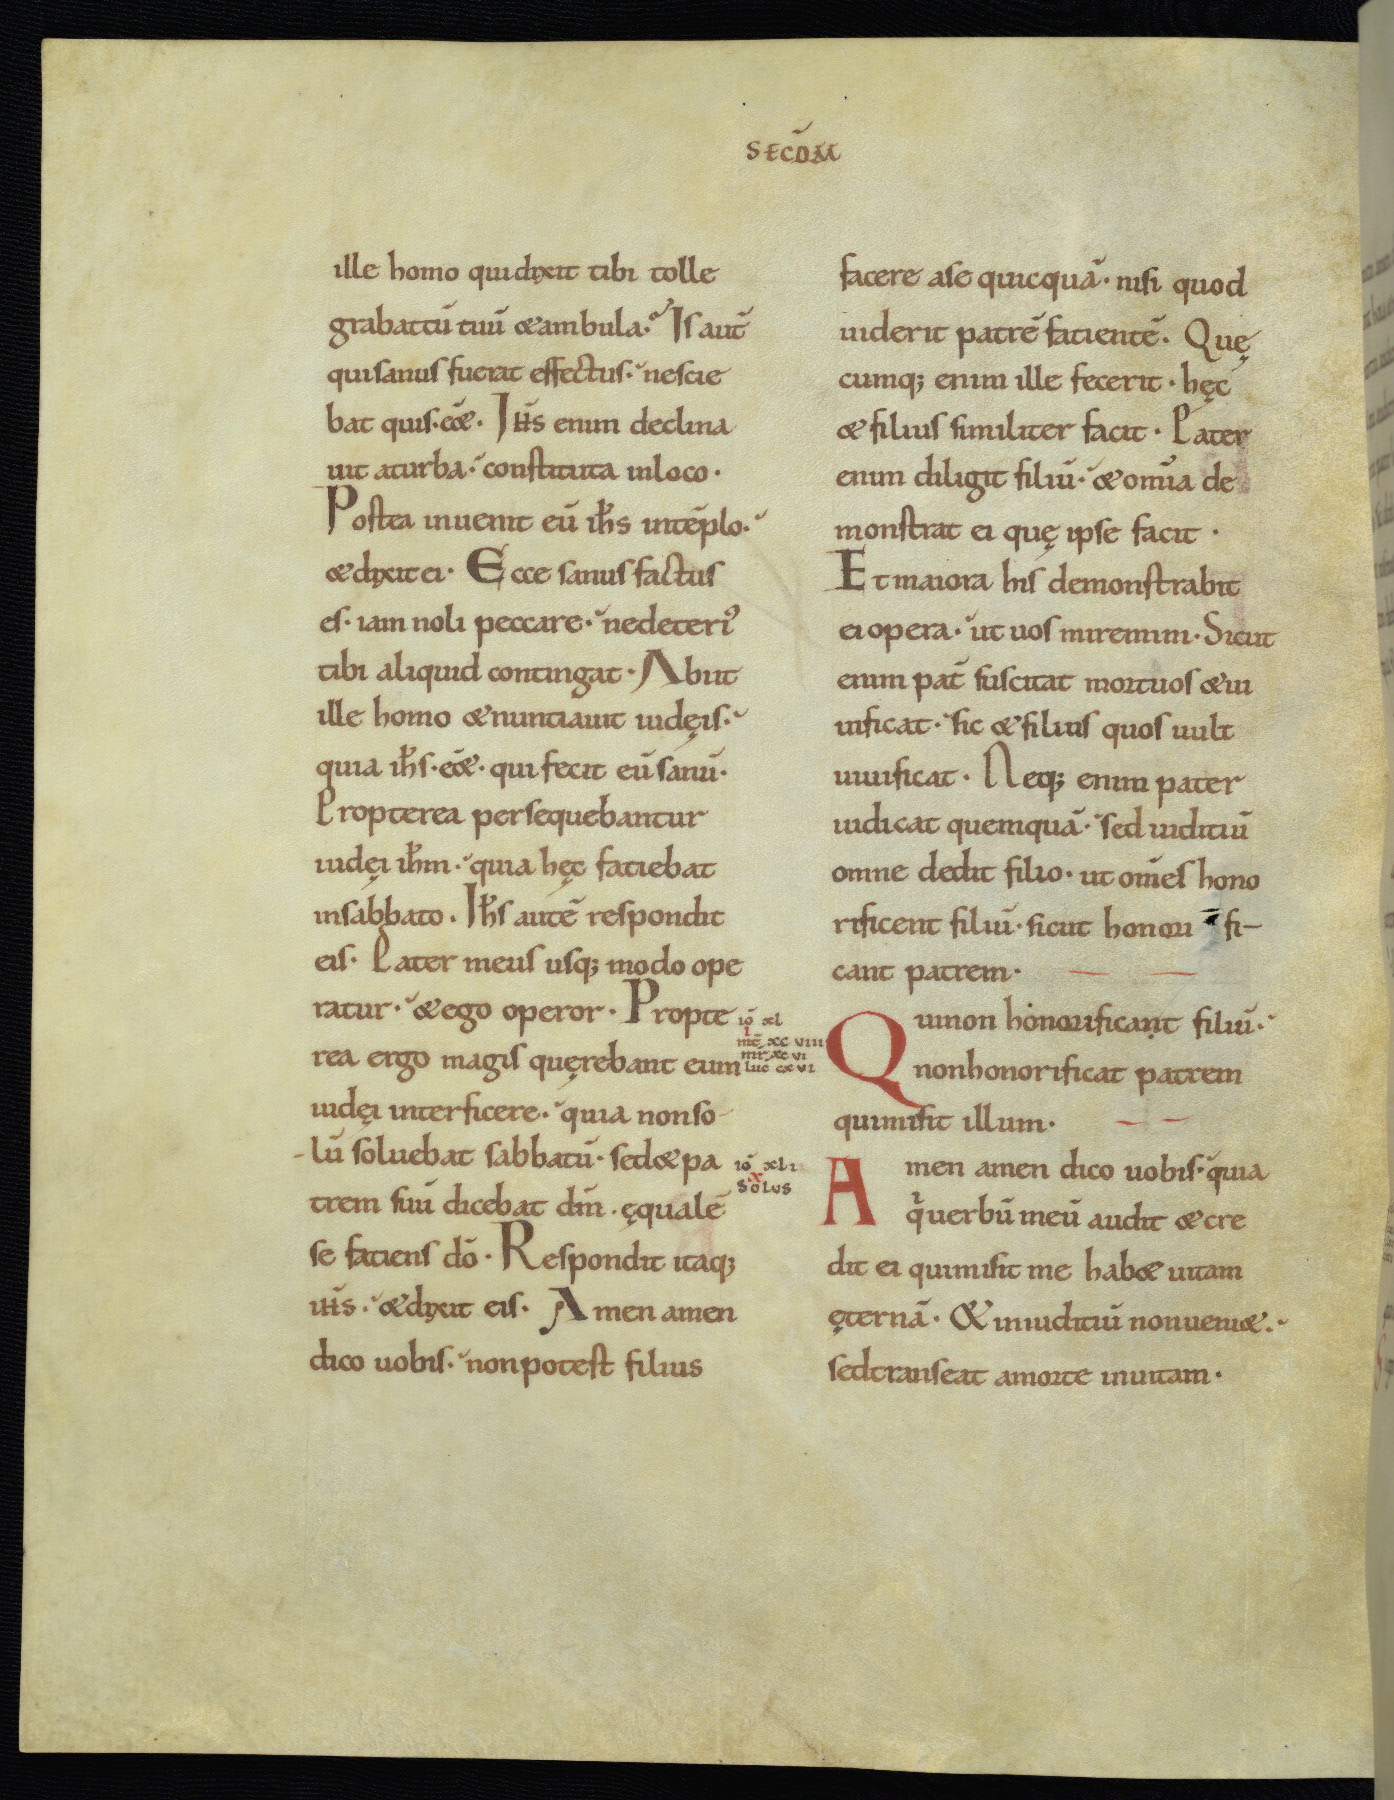 SECD̄M
ille homo qui dixit tibi tolle
grabattū tuū & ambula. Is aut̄
qui sanus fuerat effectus. nescie
bat quis. eēt. Ih̄s enim declina
uit a turba. constituta in loco.
Postea inuenit eū ih̄s in tēplo.
& dixit ei. Ecce sanus factus
es. iam noli peccare. ne deteri⁹
tibi aliquid contingat. Abiit
ille homo & nuntiauit iudęis.
quia ih̄s. eēt. qui fecit eū sanū.
Propterea persequebantur
iudęi ih̄m. quia hęc fatiebat
in sabbato. Ih̄s autē respondit
eis. Pater meus usq; modo ope
ratur. & ego operor. Propte
rea ergo magis quęrebant eum
iudęi interficere. quia non so-
lū soluebat sabbatū. sed & pa
trem suū dicebat dm̄. ęqualē
se fatiens dō. Respondit itaq;
ih̄s. & dixit eis. Amen amen
dico uobis. non potest filius
iō xl
mt̄ xc viii
mr̄ xc vi
luc cxvi
iō xli
x
solus
facere a se quicquā. nisi quod
uiderit patrē fatientē. Quę
cumq; enim ille fecerit. hęc
& filius similiter facit. Pater
enim diligit filiū. & om̄ia de
monstrat ei quę ipse facit.
Et maiora his demonstrabit
ei opera. ut uos miremini. Sicut
enim pat̄ suscitat mortuos & ui
uificat. sic & filius quos uult
uiuificat. Neq; enim pater
iudicat quemquā. sed iuditiū
omne dedit filio. ut om̄es hono
rificent filiū. sicut honori fi-
cant patrem.
Qui non honorificant filiū.
non honorificat patrem
qui misit illum.
Amen amen dico uobis. quia
qⁱ uerbū meū audit & cre
dit ei qui misit me hab& uitam
ęternā. & in iuditiū non ueni&.
sed transeat a morte in uitam.